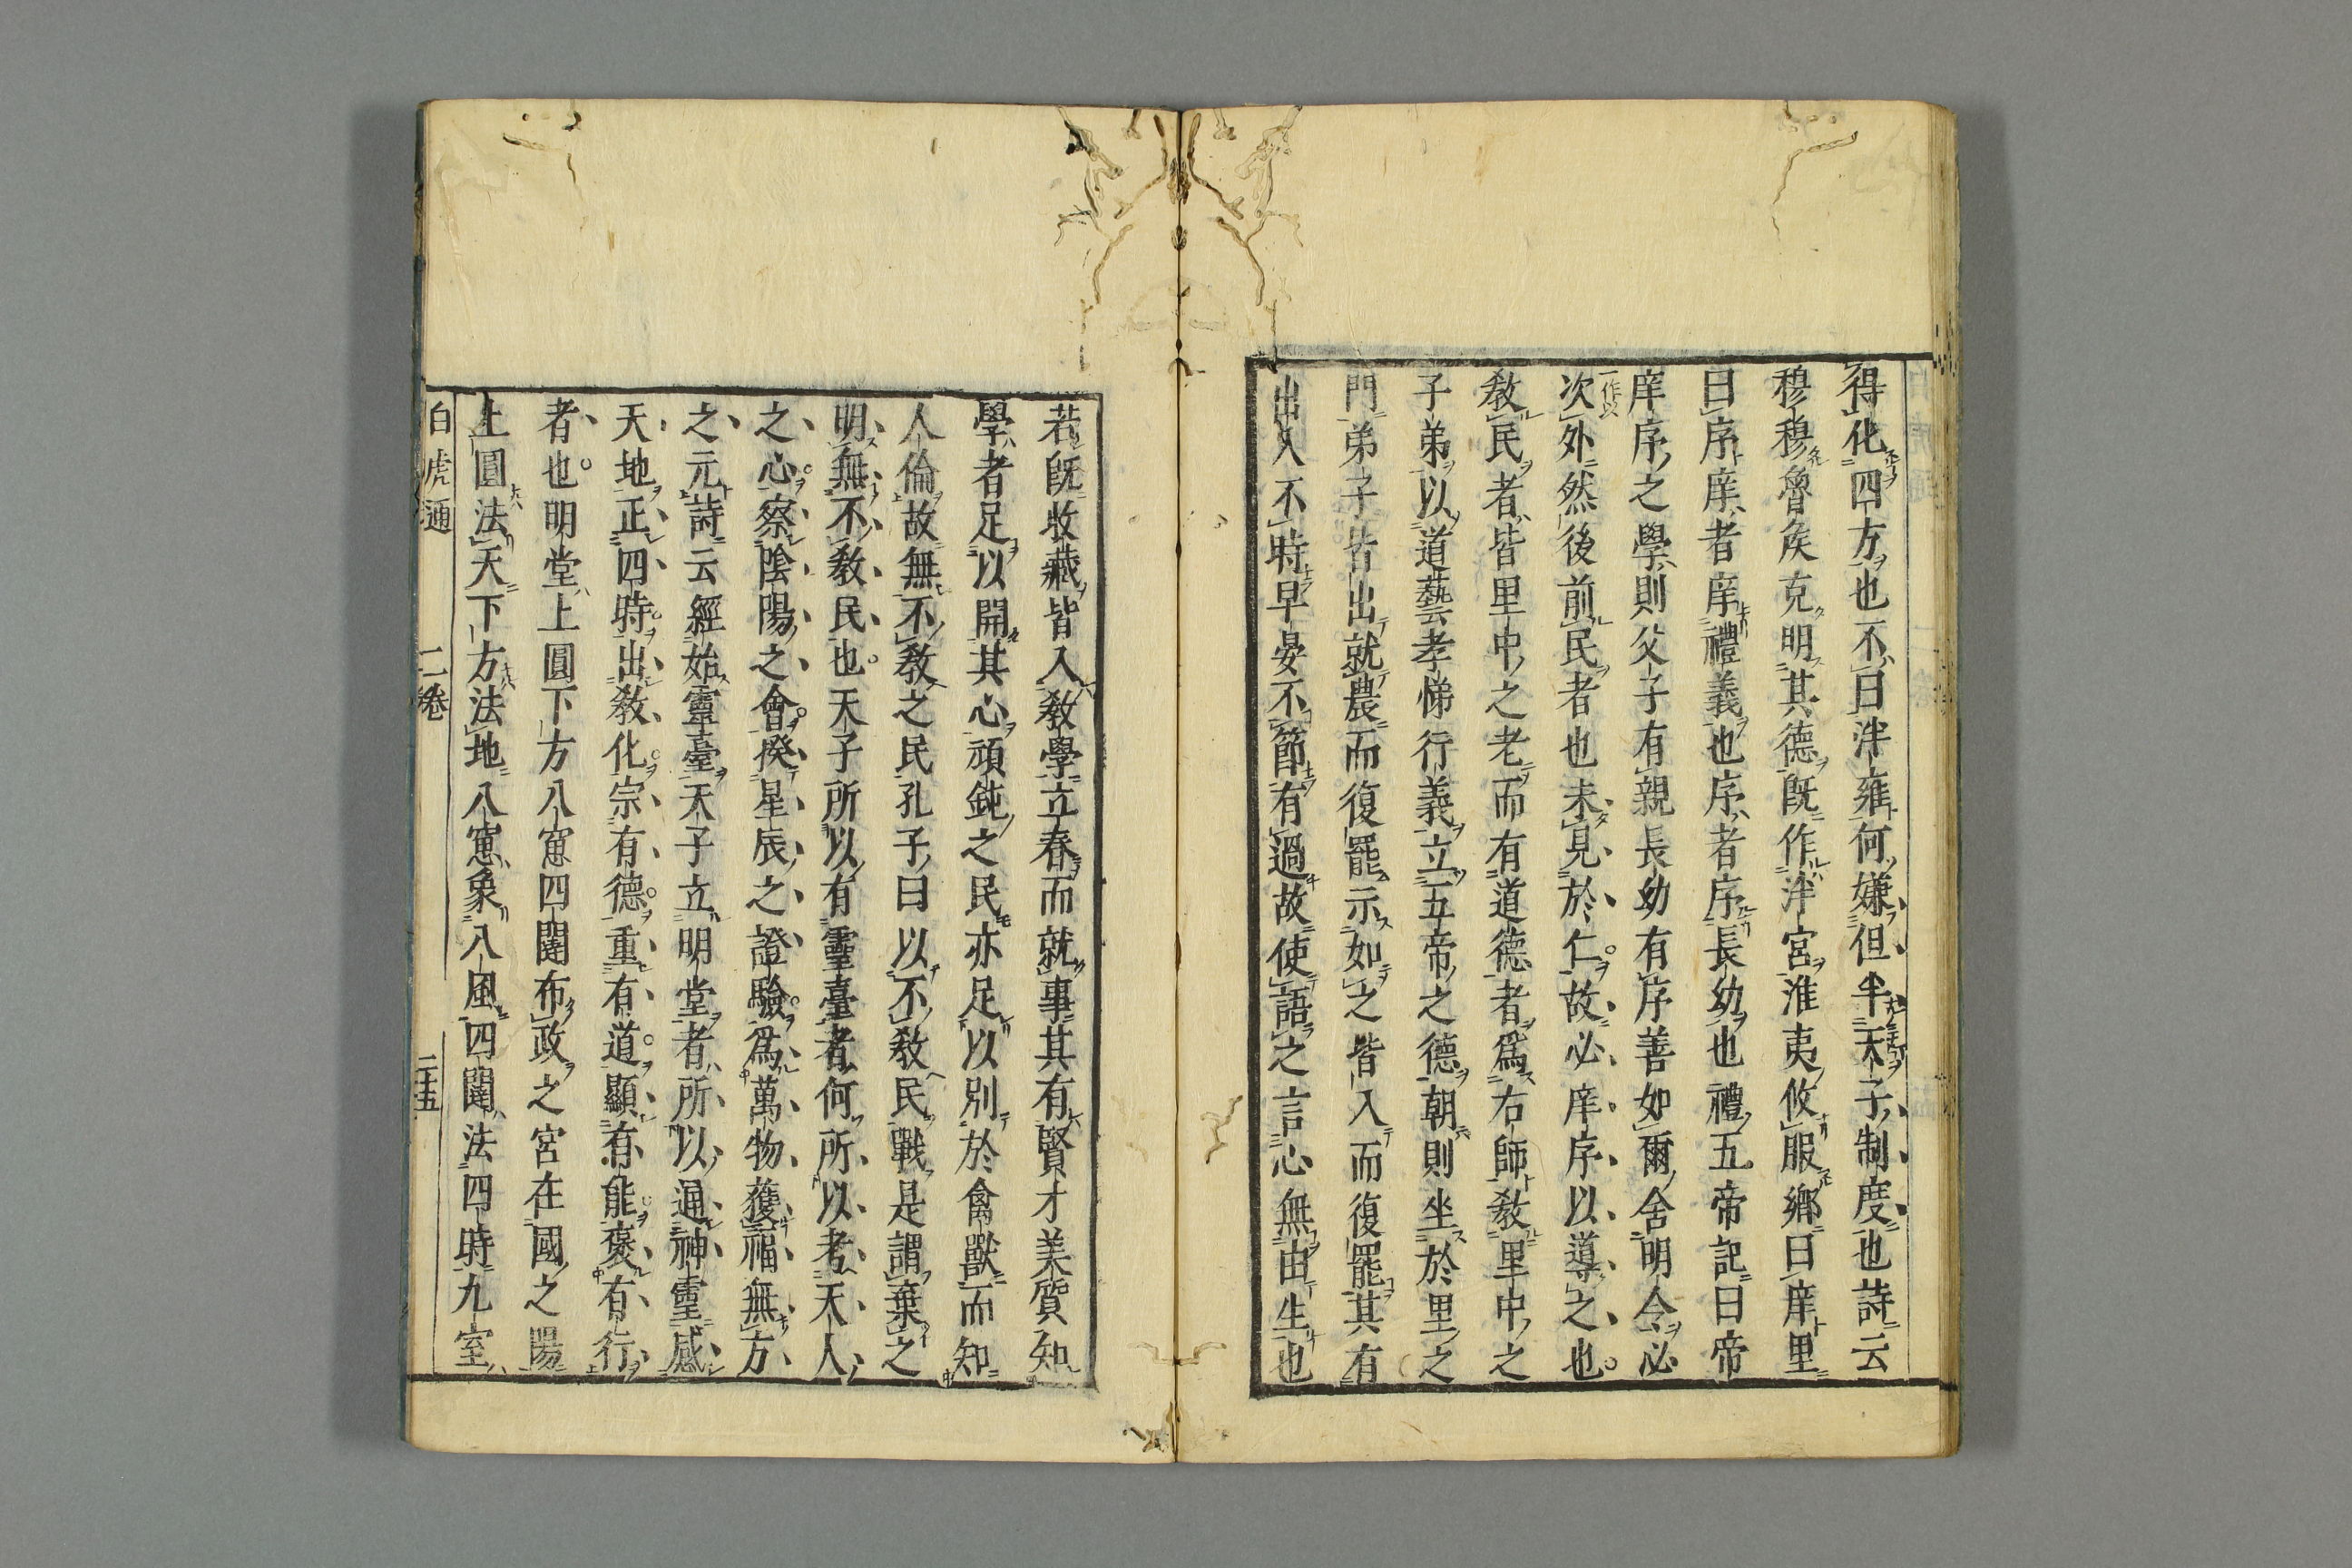 得化四方也不曰泮雍何嫌但半天子制度也詩云
穆穆魯矦克明其德旣作泮宮淮夷攸服鄉曰庠里
曰序庠者庠禮義也序者序長幼也禮五帝記曰帝
庠序之學則父子有親長幼有序善如爾舍明令必
一作以
次外然後前民者也未見於仁故必庠序以導之也
敎民者皆里中之老而有道德者爲右師敎里中之
子弟以道藝孝悌行義立五帝之德朝則坐於里之
門弟子皆出就農而復罷示如之皆入而復罷其有
出入不時早晏不節有過故使語之言心無由生也
若旣收藏皆入敎學立春而就事其有賢才美質知
學者足以開其心頑鈍之民亦足以別於禽獸而知
人倫故無不敎之民孔子曰以不敎民戰是謂棄之
明無不敎民也天子所以有靈臺者何所以考天人
之心察陰陽之會揆星辰之證驗爲萬物獲福無方
之元詩云經始靈臺天子立明堂者所以通神靈感
天地正四時出敎化宗有德重有道顯有能褒有行
者也明堂上圓下方八窻四闥布政之宮在國之陽
上圓法天下方法地八窻象八風四闥法四時九室
白虎通 二卷 二十五